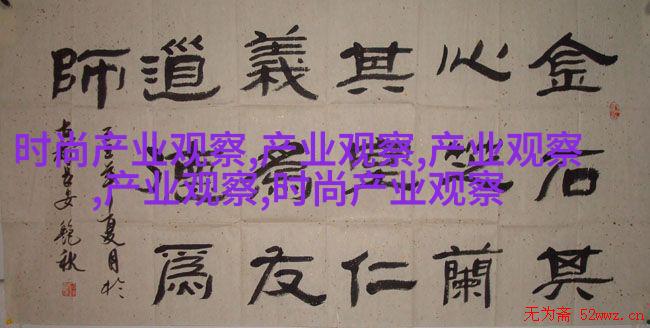 金石其
心芝蘭
其室仁
義為友
道德為
師
年夏月於
时尚产业观察,产业观察,产业观察
,产业观察,时尚产业观察
无为斋 52wwz.cn